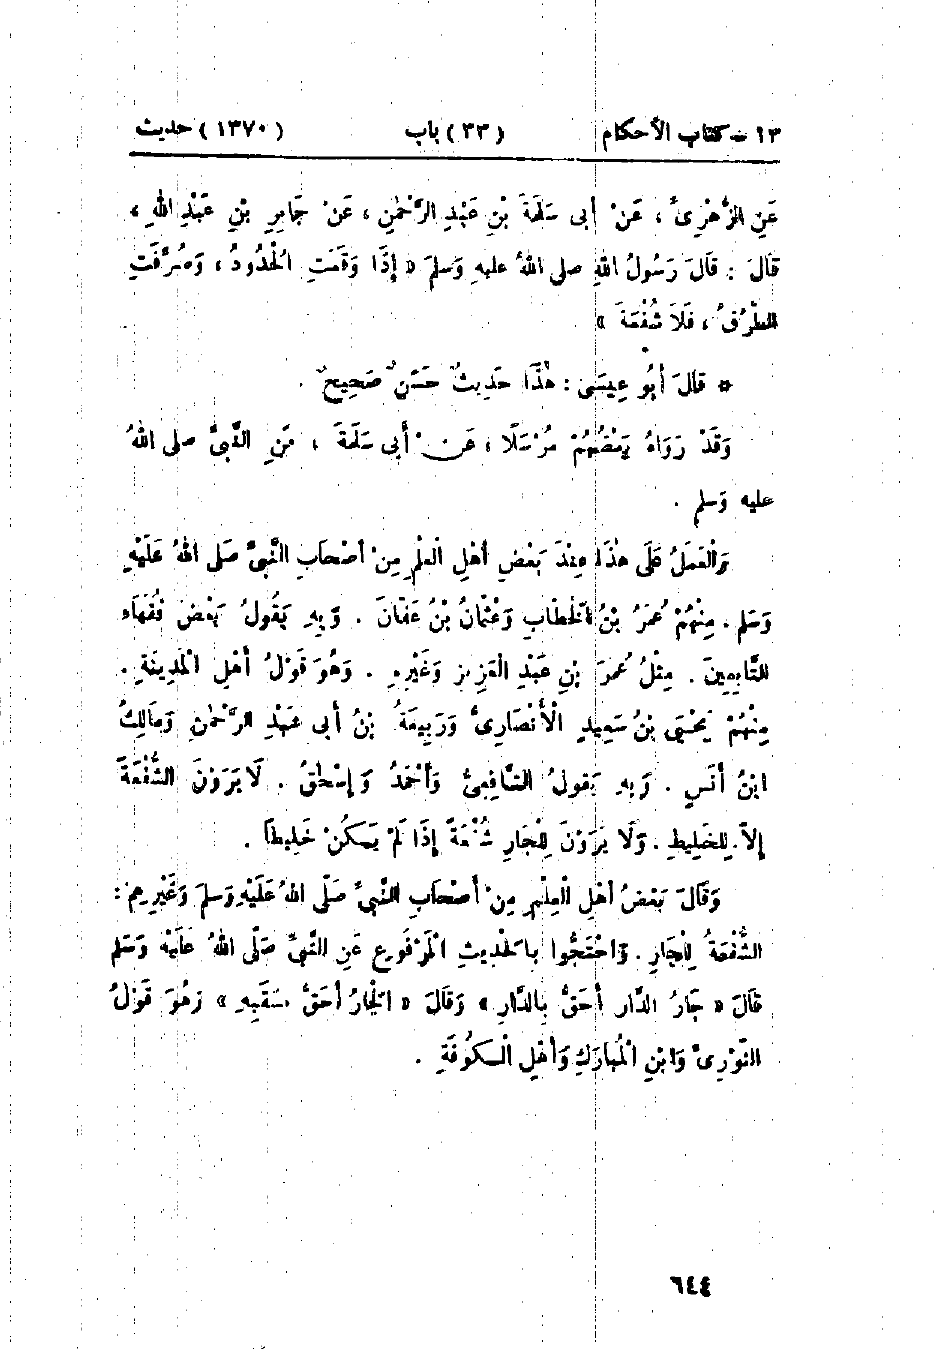 ١٣ – كتاب الأحكام (٣٣) باب (١٣٧٠) حديث
عَنِ الزُّهْرِىِّ ، عَنْ أَبِى سَلَمَةَ بْنِ عَبْدِ الرَّحْمٰنِ ، عَنْ جَابِرِ بْنِ عَبْدِ اللهِ ،
قَالَ : قَالَ رَسُولُ اللهِ صلى اللهُ عليهِ وَسلمَ « إِذَا وَقَعَتِ الْحُدُودُ ، وَصُرِّفَتِ
الطُّرُقُ ، فَلَا شُفْعَةَ »
* قَالَ أَبُو عِيسَى : هٰذَا حَدِيثٌ حَسَنٌ صَحِيحٌ .
وَقَدْ رَوَاهُ بَعْضُهُمْ مُرْسَلًا ، عَنْ أَبِى سَلَمَةَ ، عَنِ النَّبِىِّ صلى اللهُ
عليه وَسلم .
وَالْعَمَلُ عَلَى هٰذَا عِنْدَ بَعْضِ أَهْلِ الْعِلْمِ مِنْ أَصْحَابِ النَّبِىِّ صَلى اللهُ عَلَيْهِ
وَسَلم . مِنْهُمْ عُمَرُ بْنُ الْخَطَّابِ وَعُثْمَانُ بْنُ عَفَّانَ . وَبِهِ يَقُولُ بَعْضُ فُقَهَاءِ
التَّابِعِينَ . مِثْلُ عُمَرَ بْنِ عَبْدِ الْعَزِيزِ وَغَيْرِهِ . وَهُوَ قَوْلُ أَهْلِ الْمَدِينَةِ .
مِنْهُمْ يَحْيَى بْنُ سَعِيدٍ الْأَنْصَارِىُّ وَرَبِيعَةُ بْنُ أَبِى عَبْدِ الرَّحْمٰنِ وَمَالِكُ
ابْنُ أَنَسٍ . وَبِهِ يَقُولُ الشَّافِعِىُّ وَأَحْمَدُ وَإِسْحٰقُ . لَا يَرَوْنَ الشُّفْعَةَ
إِلاَّ لِلْخَلِيطِ . وَلَا يَرَوْنَ لِلْجَارِ شُفْعَةً إِذَا لَمْ يَكُنْ خَلِيطاً .
وَقَالَ بَعْضُ أَهْلِ الْعِلْمِ مِنْ أَصْحَابِ النَّبِىِّ صَلَّى اللهُ عَلَيْهِ وَسَلمَ وَغَيْرِهِمْ :
الشُّفْعَةُ لِلْجَارِ . وَاحْتَجُّوا بِالْحَدِيثِ الْمَرْفُوعِ عَنِ النَّبِىِّ صَلَّى اللهُ عَلَيْهِ وَسَلم
قَالَ « جَارُ الدَّارِ أَحَقُّ بِالدَّارِ » وَقَالَ « الْجَارُ أَحَقُّ بِسَقَبِهِ » وَهُوَ قَوْلُ
الثَّوْرِىِّ وَابْنِ الْمُبَارَكِ وَأَهْلِ الْكُوفَةِ .
٦٤٤